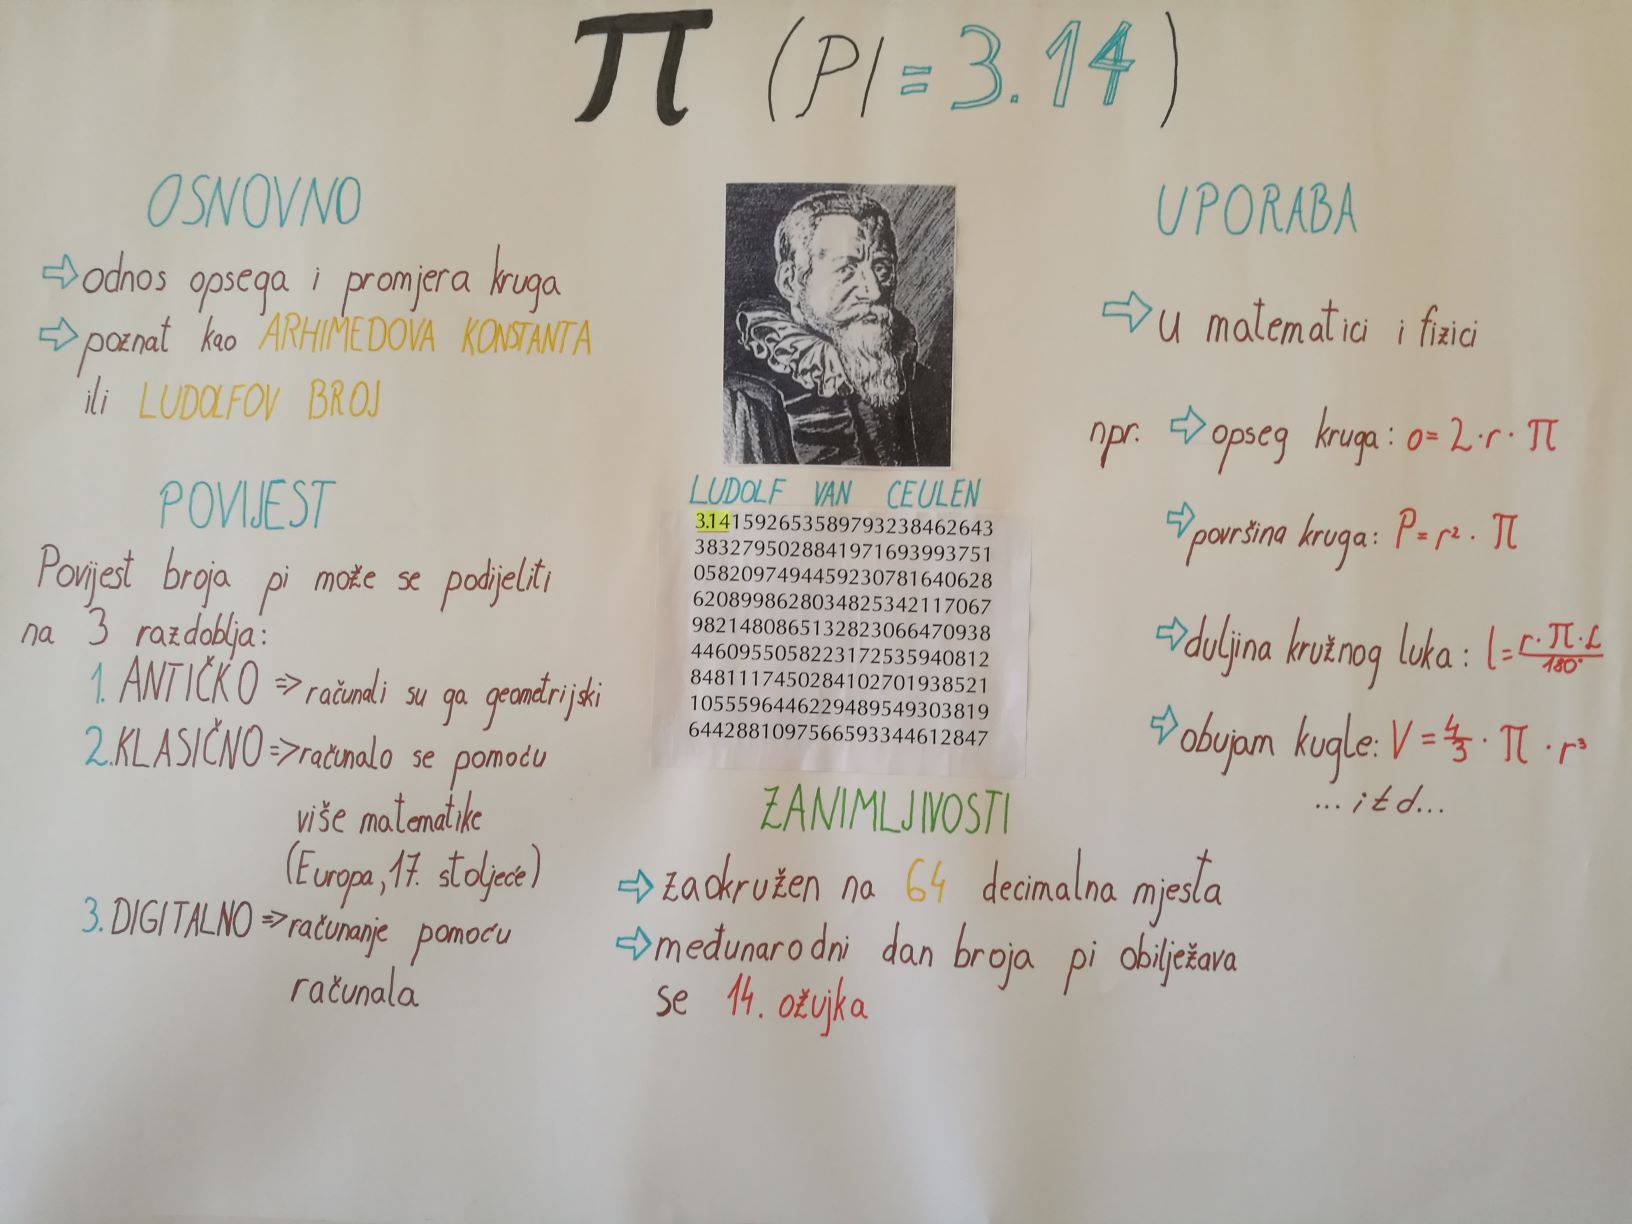 π (PI = 3.14)
OSNOVNO
⇨ odnos opsega i promjera kruga
⇨ poznat kao ARHIMEDOVA KONSTANTA
ili LUDOLFOV BROJ
POVIJEST
Povijest broja pi može se podijeliti
na 3 razdoblja:
1. ANTIČKO => računali su ga geometrijski
2. KLASIČNO => računalo se pomoću
više matematike
(Europa, 17. stoljeće)
3. DIGITALNO => računanje pomoću
računala
LUDOLF VAN CEULEN
3.141592653589793238462643
3832795028841971693993751
0582097494459230781640628
6208998628034825342117067
9821480865132823066470938
4460955058223172535940812
8481117450284102701938521
10555964462294895493038 19
6442881097566593344612847
ZANIMLJIVOSTI
⇨ zaokružen na 64 decimalna mjesta
⇨ međunarodni dan broja pi obilježava
se 14. ožujka
UPORABA
⇨ u matematici i fizici
npr. ⇨ opseg kruga: o = 2·r·π
⇨ površina kruga: P = r²·π
⇨ duljina kružnog luka: l = r·π·L/180°
⇨ obujam kugle: V = 4/3·π·r³
...itd...